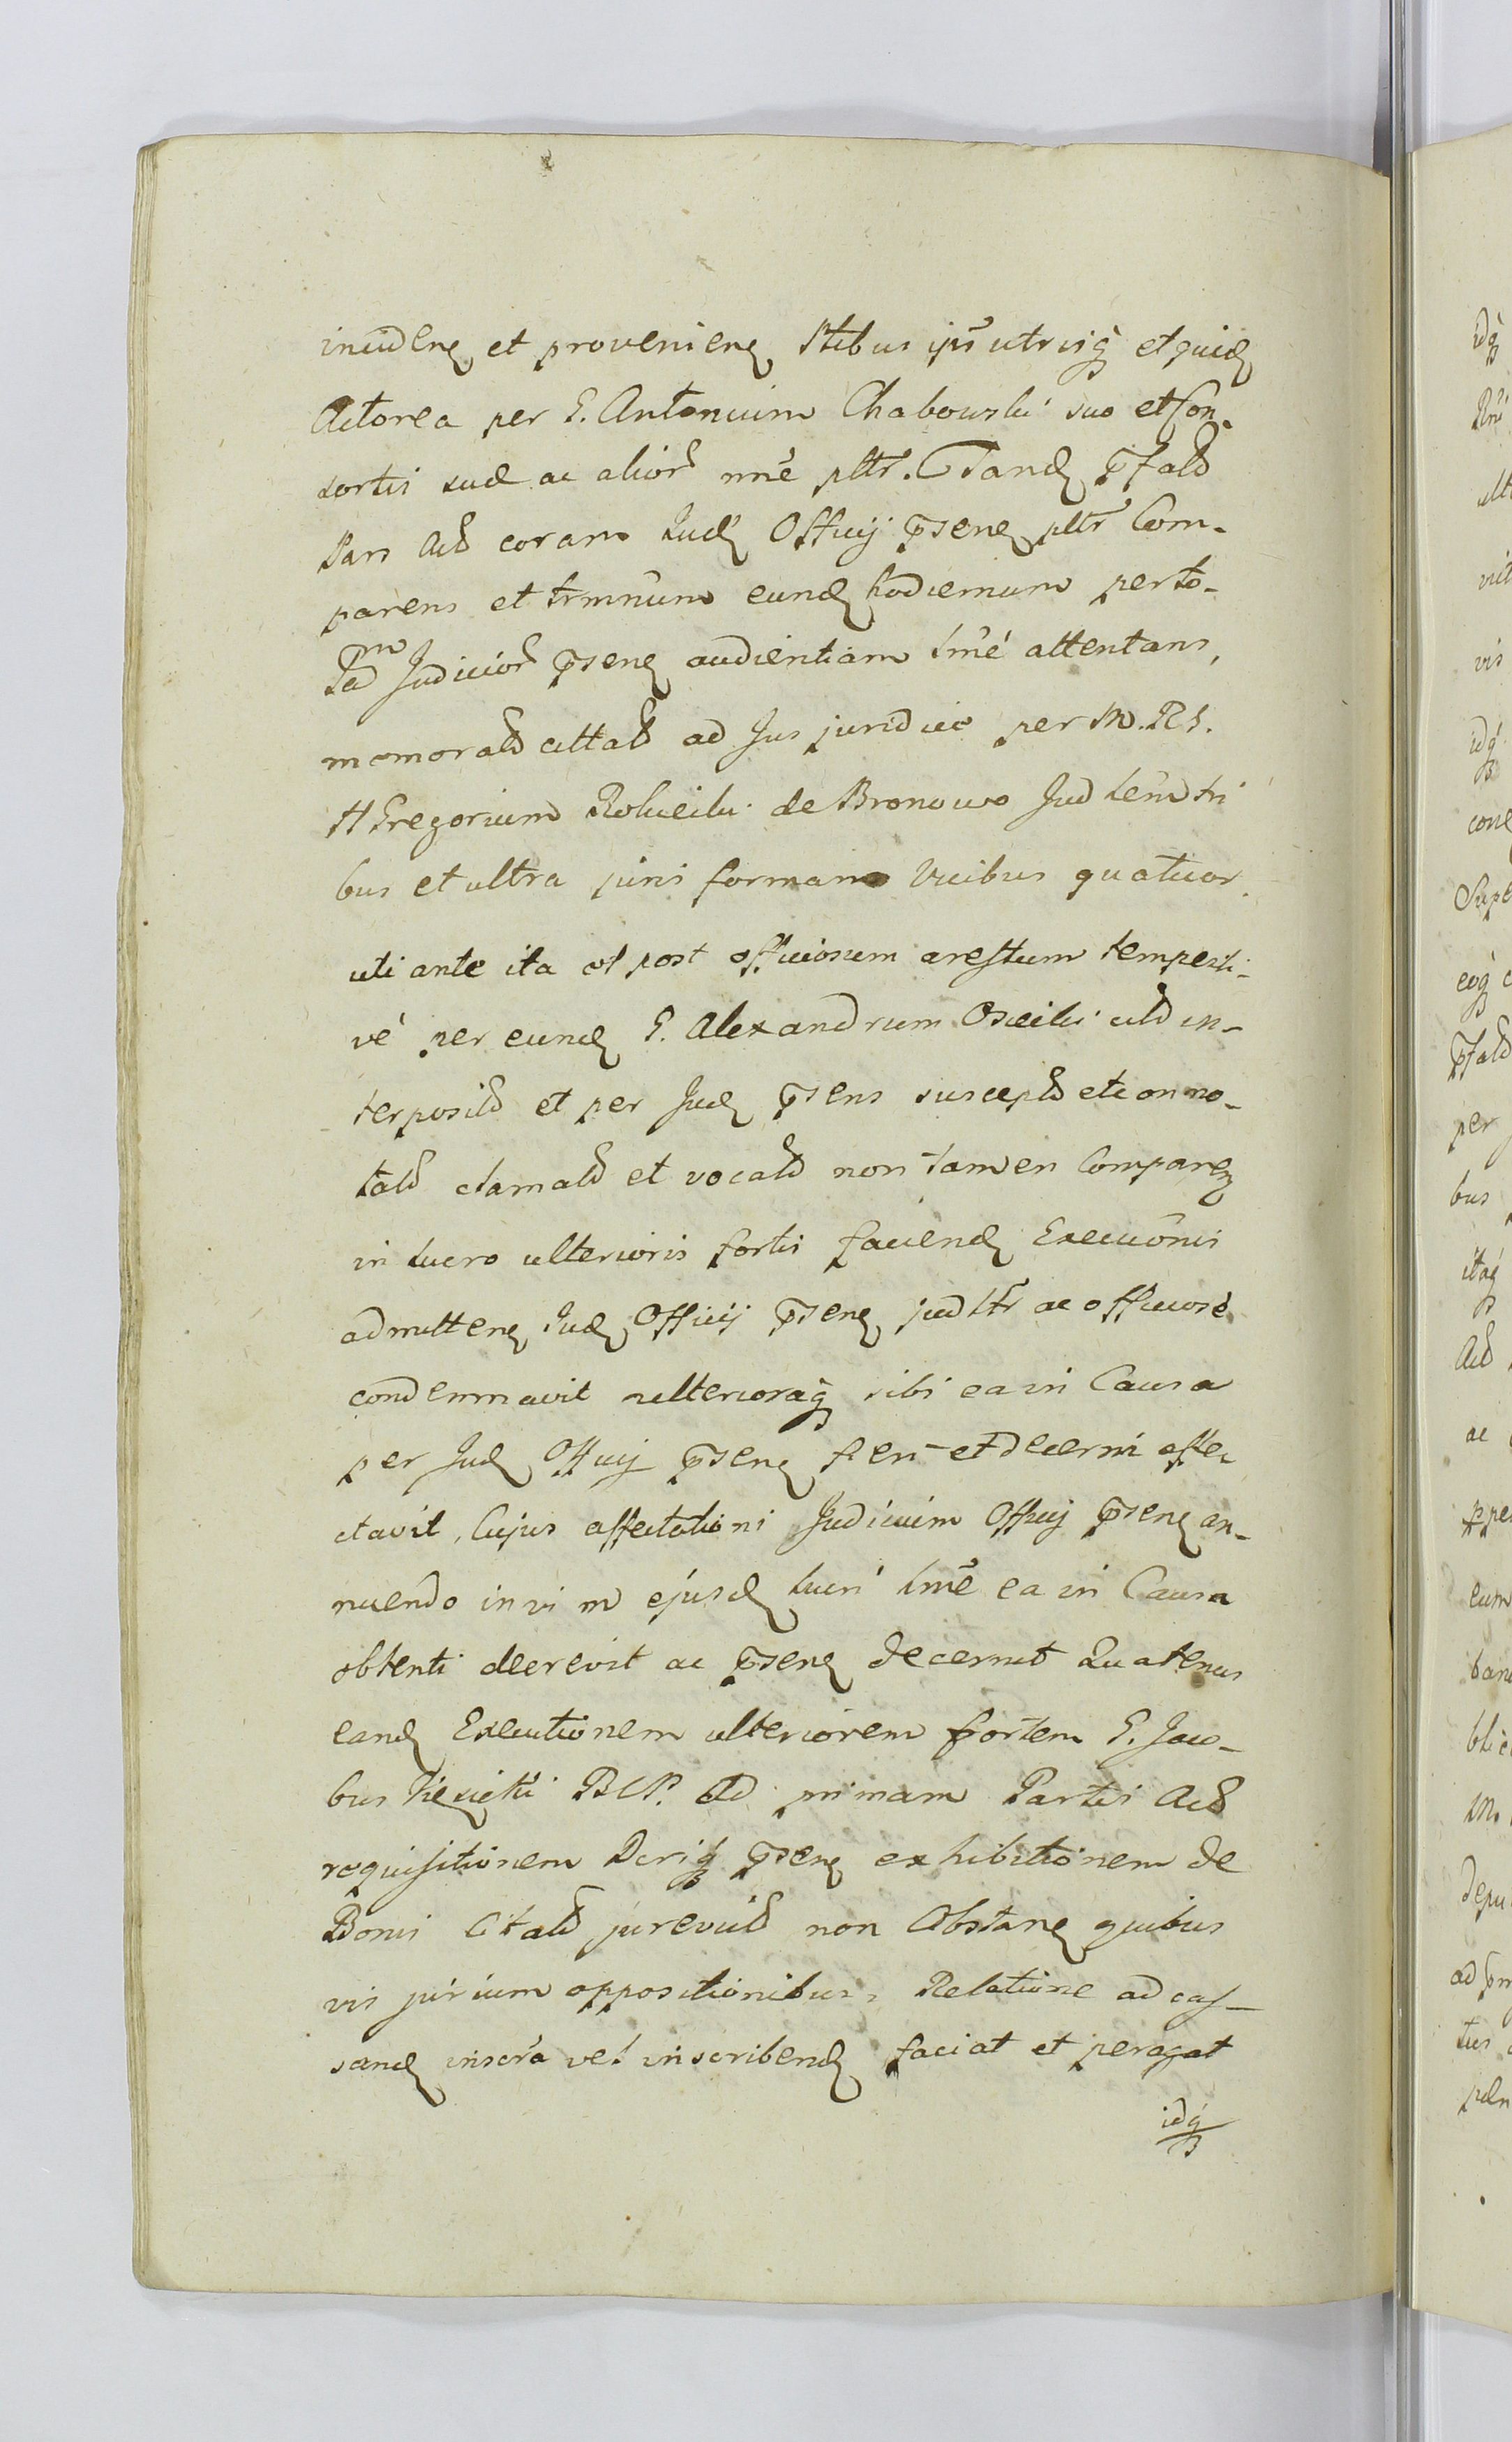 incidenꝫ et provenienꝫ Ptibus ip̃s utrisq̃ et quidꝫ
Actorea per G. Antonium Chabowski suo et Con-
sortis suæ ac alior̃ nñe pltr̃. Tandꝫ p̃fatã
Pars Act̃ coram Judꝫ Officij p̃senꝫ pltr̃ Com-
parens et trmnũm eundꝫ hodiernum per to-
tam Judicior̃ p̃senꝫ audientiam lm̃é attentans,
memorat̃ citat̃ ad Jus juridice per M. RS.
H Gregorium de Bronowo Jud tẽm tri
bus et ultra juris formam Vicibus quatuor
uti ante ita et post officiosum arestum tempesti-
vé per eundꝫ G. Alexandrum in-
terposit̃ et per Judꝫ p̃sens suscept̃ et conno-
tat̃ clamat̃ et vocat̃ non tamen Comparenꝫ
in lucro ulterioris fortis faciendꝫ Execuõnis
admittenꝫ Judꝫ Officij p̃senꝫ judltr̃ ac officiosé
condemnavit ulterioraq̃ sibi ea in Causa
per Judꝫ Officij p̃senꝫ fieri et decerni affec
ctavit, Cujus affectationi Judicium Officij p̃senꝫ an-
nuendo in vim ejusdꝫ lucri lm̃e ea in Causa
obtenti decrevit ac p̃senꝫ decernit Quatenus
eandꝫ Executionem ulteriorem fortem G. Jaco-
bus BCP. Ad primam Partis Act̃
requisitionem Dcriq̃ p̃senꝫ exhibitionem de
Bonis Citat̃ jurevict̃ non Obstanꝫ quibus
vis jurium oppositionibus, Relatione ad cas-
sandꝫ inscr̃a vel inscribendꝫ faciat et peragat
idq̃